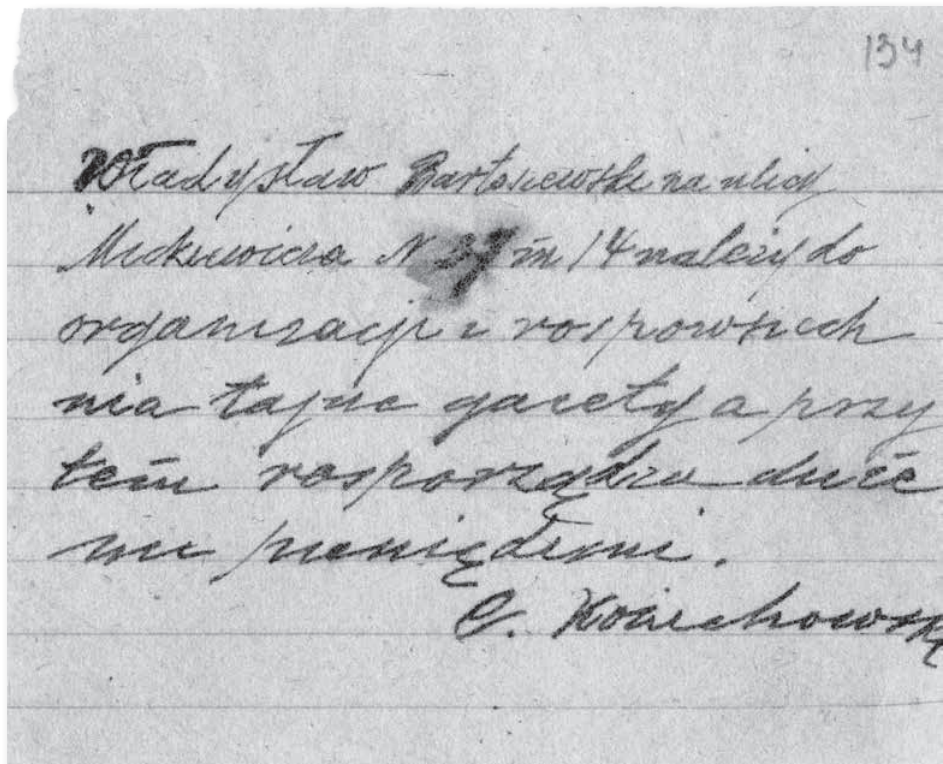 134
Władysław Bartoszewski na ulicy
Mickiewicza N 37 m 14 należy do
organizacji i rospowszech
nia tajne gacety a przy
tem rosporządza duże
mi pieniędzmi.
C. Kociechowski